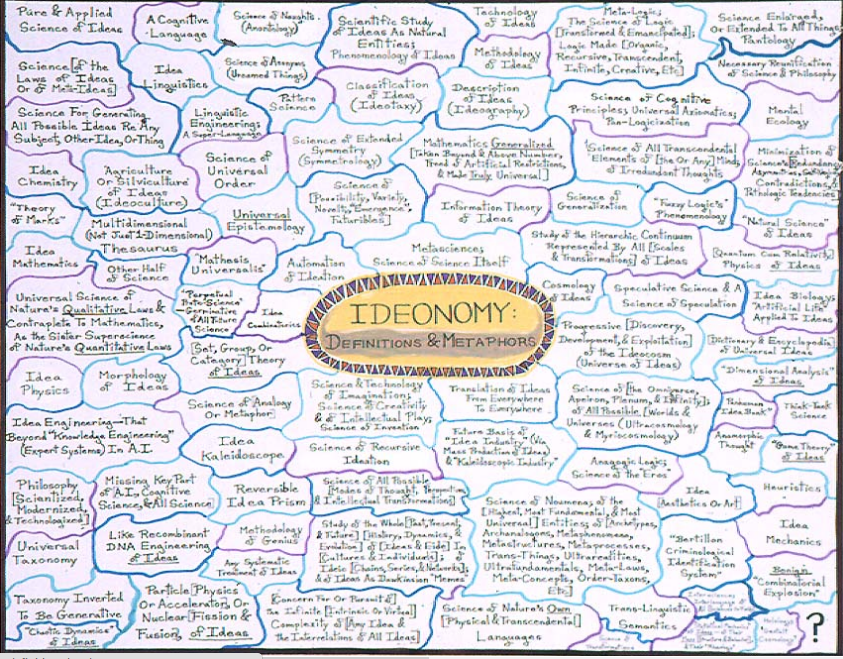 Pure & Applied
Science of Ideas
A Cognitive
Language
Science of Noughts
(Anontology)
Scientific Study
of Ideas As Natural
Entities;
Phenomenology of Ideas
Technology
of Ideas
Meta-Logic;
The Science of Logic
[Transformed & Emancipated];
Logic Made [Organic,
Recursive, Transcendent,
Infinite, Creative, Etc]
Science Enlarged,
Or Extended To All Things;
Pantology
Science [of the
Laws of Ideas
Or of Meta-Ideas]
Idea
Linguistics
Science of Anonyms
(Unnamed Things)
Methodology
of Ideas
Necessary Reunification
of Science & Philosophy
Science For Generating
All Possible Ideas Re Any
Subject, Other Idea, Or Thing
Linguistic
Engineering;
A Super-Language
Pattern
Science
Classification
of Ideas
(Ideotaxy)
Description
of Ideas
(Ideography)
Science of Cognitive
Principles; Universal Axiomatics;
Pan-Logicization
Mental
Ecology
Idea
Chemistry
'Agriculture
Or Silviculture'
of Ideas
(Ideoculture)
Science of
Universal
Order
Science of Extended
Symmetry
(Symmetrology)
Mathematics Generalized
[Taken Beyond & Above Number,
Freed of Artificial Restrictions,
& Made Truly Universal]
'Science of All Transcendental
Elements of [the Or Any] Mind;
of Irredundant Thoughts
Minimization of
Science's [Redundancy,
Contradictions, &
Pathologic Tendencies]
"Theory
of Marks"
Multidimensional
(Not Just 1-Dimensional)
Thesaurus
Universal
Epistemology
Science of
[Possibility, Variety,
Novelty, "Emergence",
Futuribles]
Information Theory
of Ideas
Science of
Generalization
"Fuzzy Logic's"
Phenomenology
"Natural Science"
of Ideas
Idea
Mathematics
Other Half
of Science
"Mathesis
Universalis"
Automation
of Ideation
Metascience;
Science of Science Itself
Study of the Hierarchic Continuum
Represented By All [Scales
& Transformations] of Ideas
[Quantum Cum Relativity]
Physics of Ideas
Universal Science of
Nature's Qualitative Laws &
Contraplete To Mathematics,
As the Sister Superscience
of Nature's Quantitative Laws
"Perpetual
Proto-Science"
—Germinative
of All Future
Science
Idea
Combinatorics
IDEONOMY:
DEFINITIONS & METAPHORS
Cosmology
of Ideas
Speculative Science & A
Science of Speculation
Idea Biology;
"Artificial Life"
Applied To Ideas
[Set, Group, Or
Category] Theory
of Ideas
Progressive [Discovery,
Development, & Exploitation]
of the Ideocosm
(Universe of Ideas)
Dictionary & Encyclopedia
of Universal Ideas
Idea
Physics
Morphology
of Ideas
Science of Analogy
Or Metaphor
Science & Technology
of Imagination;
Science of Creativity
& of Intellectual Play;
Science of Invention
Translation of Ideas
From Everywhere
To Everywhere
Science of [the Omniverse,
Apeiron, Plenum, & Infinity];
of All Possible [Worlds &
Universes (Ultracosmology
& Myriocosmology)
"Dimensional Analysis"
of Ideas
Idea Bank"
Think-Tank
Science
Idea Engineering—That
Beyond "Knowledge Engineering"
(Expert Systems) In A.I.
Idea
Kaleidoscope
Science of Recursive
Ideation
Future Basis of
"Idea Industry" (Via
Mass Production of Ideas)
& "Kaleidoscopic Industry"
Anagogic Logic;
Science of the Eros
Anamorphic
Thought
"Game Theory"
of Ideas
Philosophy
[Scientized,
Modernized,
& Technologized]
Missing Key Part
of A.I., Cognitive
Science, & All Science
Reversible
Idea Prism
Science of All Possible
[Modes of Thought, Perspectives,
& Intellectual Transformations]
Idea
[Aesthetics Or Art]
Heuristics
Universal
Taxonomy
Like Recombinant
DNA Engineering
of Ideas
Methodology
of Genius
Any Systematic
Treatment of Ideas
Study of the Whole [Past, Present,
& Future] [History, Dynamics, &
Evolution] of [Ideas & Eide] In
[Cultures & Individuals]; of
Ideic [Chains, Series, & Networks];
& of Ideas As Dawkinsian "Memes"
Science of Noumena; of the
[Highest, Most Fundamental, & Most
Universal] Entities; of [Archetypes,
Archanalogons, Metaphenomena,
Metastructures, Metaprocesses,
Trans-Things, Ultrarealities,
Ultrafundamentals, Meta-Laws,
Meta-Concepts, Order-Taxons,
Etc]
"Bertillon
Criminological
Identification
System"
Idea
Mechanics
Benign
"Combinatorial
Explosion"
Taxonomy Inverted
To Be Generative
"Chaotic Dynamics"
of Ideas
Particle [Physics
Or Accelerator], Or
Nuclear [Fission &
Fusion], of Ideas
[Concern For Or Pursuit of]
the Infinite [Intrinsic Or Virtual]
Complexity of [Any Idea &
the Interrelations of All Ideas]
Science of Nature's Own
[Physical & Transcendental]
Languages
Trans-Linguistic
Semantics
?